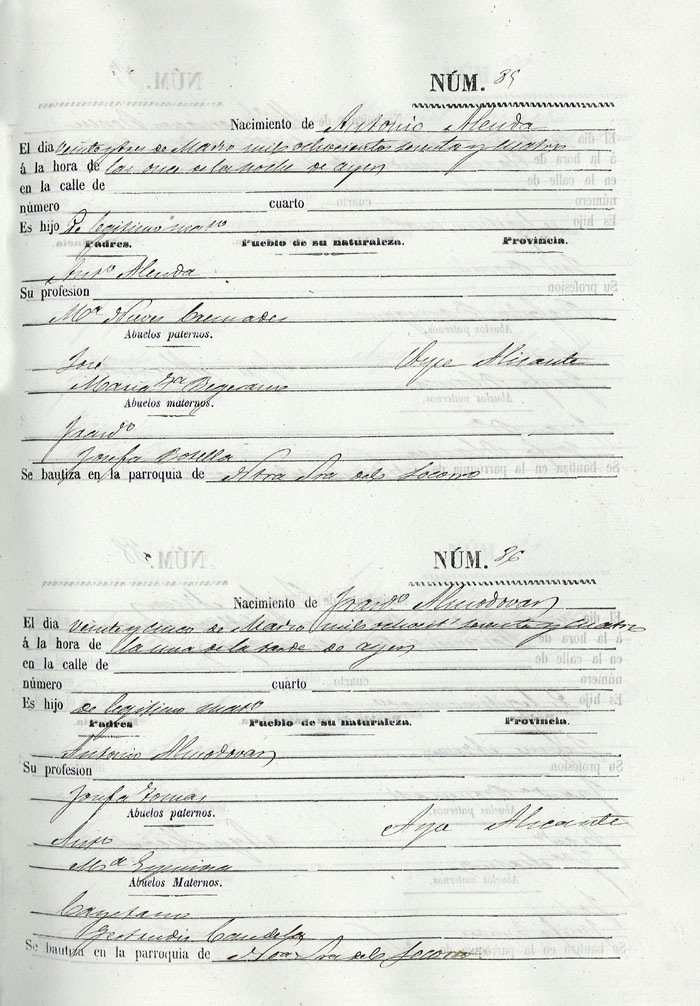 NÚM. 85
Nacimiento de Antonio Alenda
El dia veintytres de Marzo mil ochocientos sesenta y cuatro
á la hora de las once de la noche de ayer
en la calle de
número cuarto
Es hijo de legitimo mato
Padres. Pueblo de su naturaleza. Provincia.
Anto Alenda
Su profesion
Ma Nieves Cremades
Abuelos paternos.
José Aspe Alicante
Maria
Abuelos maternos.
Josefa Botella
Se bautiza en la parroquia de Ntra Sra del Socorro
NÚM. 86
Nacimiento de Almodovar
El dia veinte y cinco de Marzo mil sesenta y cuatro
á la hora de la una de la tarde de ayer
en la calle de
número cuarto
Es hijo de legitimo mato
Padres Pueblo de su naturaleza. Provincia.
Antonio Almodovar
Su profesion
Josefa Tomas
Abuelos paternos.
Anto Aspe Alicante
Ma
Abuelos Maternos.
Cayetano
Gertrudis Candela
Se bautiza en la parroquia de Ntra Sra del Socorro